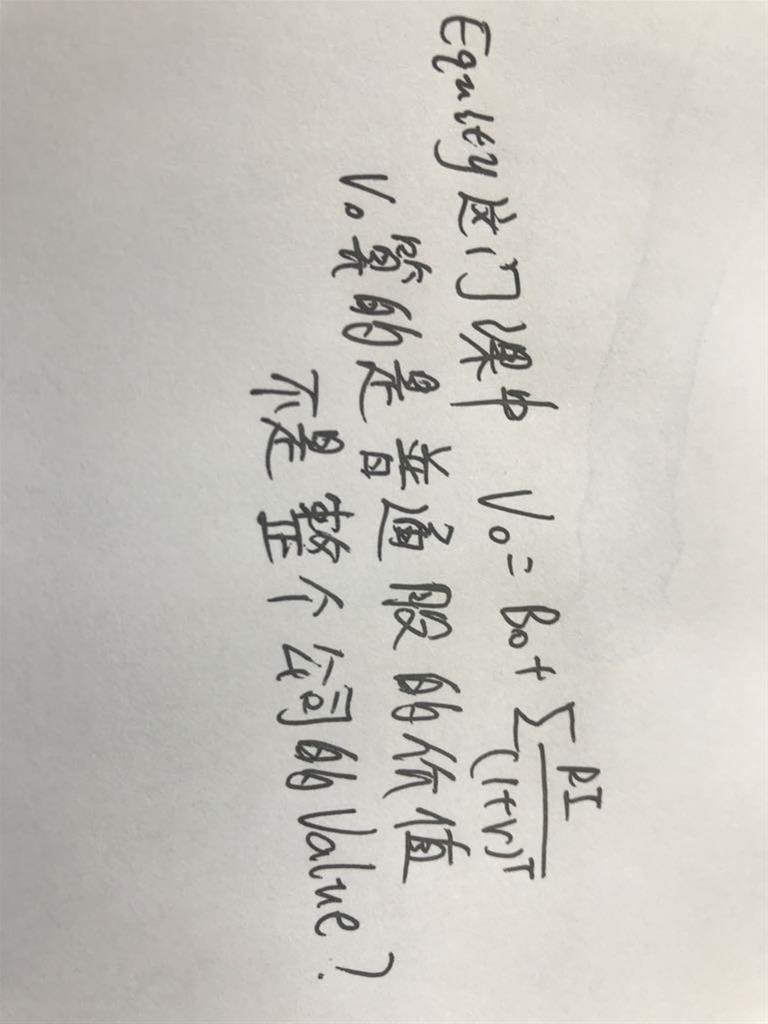 Equity 这门课中 V₀ = B₀ + ∑ RI / (1+r)ᵀ
V₀算的是普通股的价值
不是整个公司的Value?